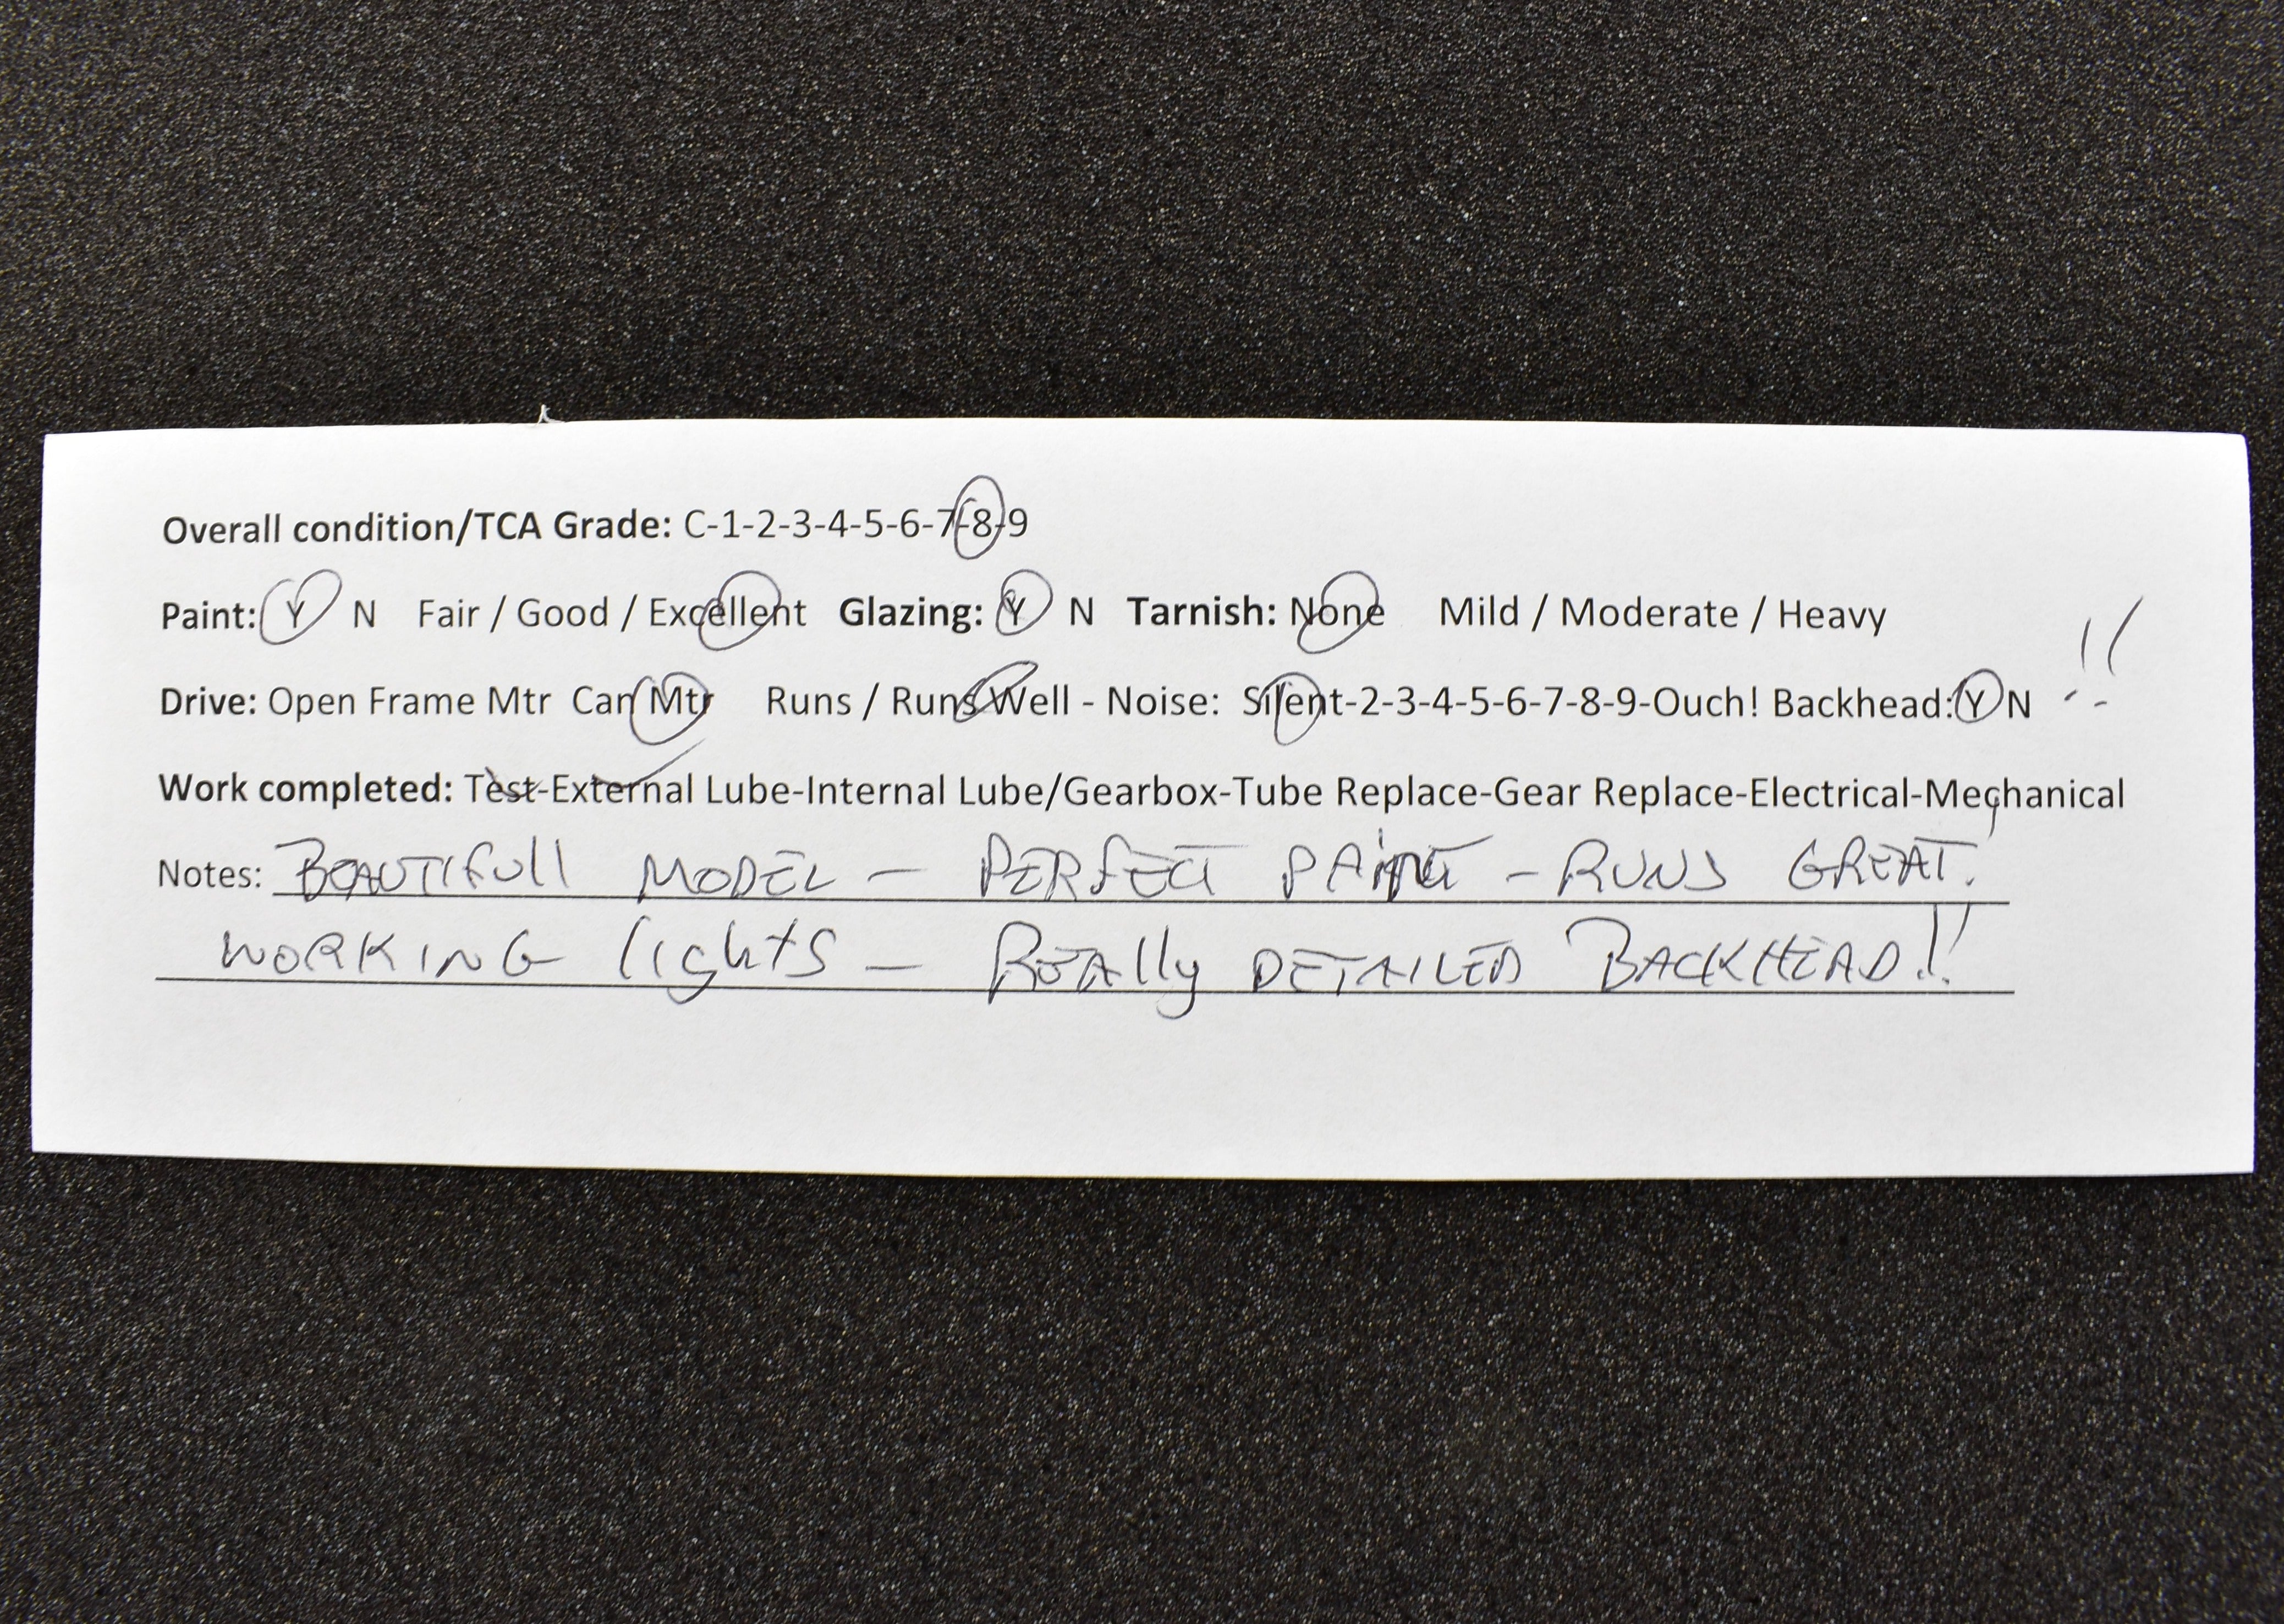 Overall condition/TCA Grade: C-1-2-3-4-5-6-7-8-9
Paint: Y N Fair / Good / Excellent Glazing: Y N Tarnish: None Mild / Moderate / Heavy
Drive: Open Frame Mtr Can Mtr Runs / Runs Well - Noise: Silent-2-3-4-5-6-7-8-9-Ouch! Backhead: Y N !!
Work completed: Test-External Lube-Internal Lube/Gearbox-Tube Replace-Gear Replace-Electrical-Mechanical
Notes: BEAUTIFull MODEL - PERFECT PAINT - RUNS GREAT!
WORKING lights - REAlly DETAILED BACKHEAD!!